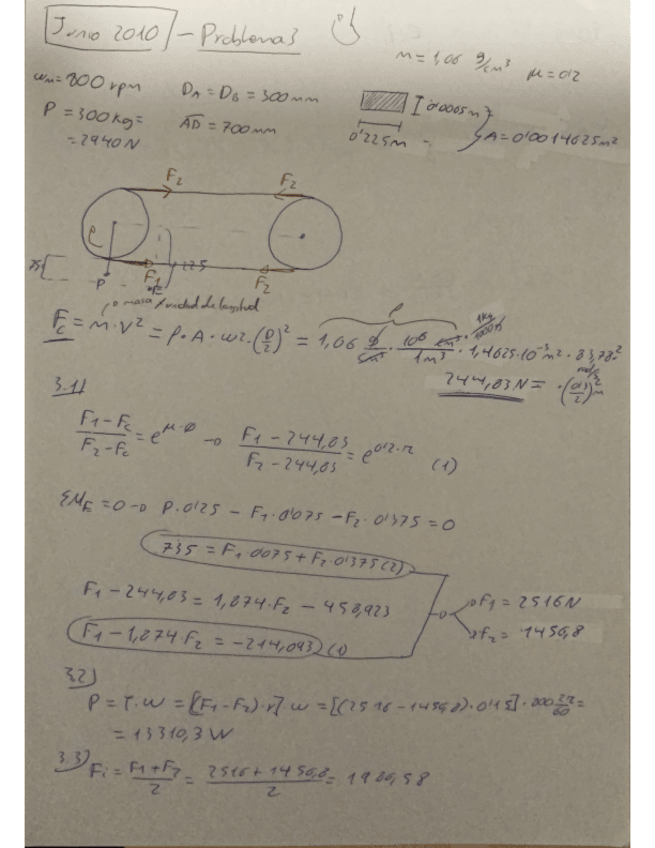 Junio 2010 - Problema 3
m = 1,06 g/cm³ μ = 0'2
ωm = 800 rpm DA = DB = 300 mm
P = 300 kg = AD = 700 mm
= 2940 N
0'0065 m
0'225 m
A = 0'0014625 m²
F2 F2
P F1 F2
masa/unidad de longitud
Fc = m·V² = ρ·A·ω²·(D/2)² = 1,06 g/cm³ · 10⁶ cm³/1m³ · 1kg/1000g · 1,4625·10⁻³ m² · 83,78²
244,83 N = ·(0'3/2)² m
3.1)
F1 - Fc / F2 - Fc = e^μ·φ → F1 - 244,83 / F2 - 244,83 = e^0'2·π (1)
ΣME = 0 → P·0'25 - F1·0'075 - F2·0'375 = 0
735 = F1·0'075 + F2·0'375 (2)
F1 - 244,83 = 1,874·F2 - 458,923
F1 - 1,874·F2 = -214,093 (1)
F1 = 2516 N
F2 = 1456,8
3.2)
P = T·ω = [(F1 - F2)·r]·ω = [(2516 - 1456,8)·0'15]·800 2π/60 =
= 13310,3 W
3.3) Fi = F1 + F2 / 2 = 2516 + 1456,8 / 2 = 1986,58